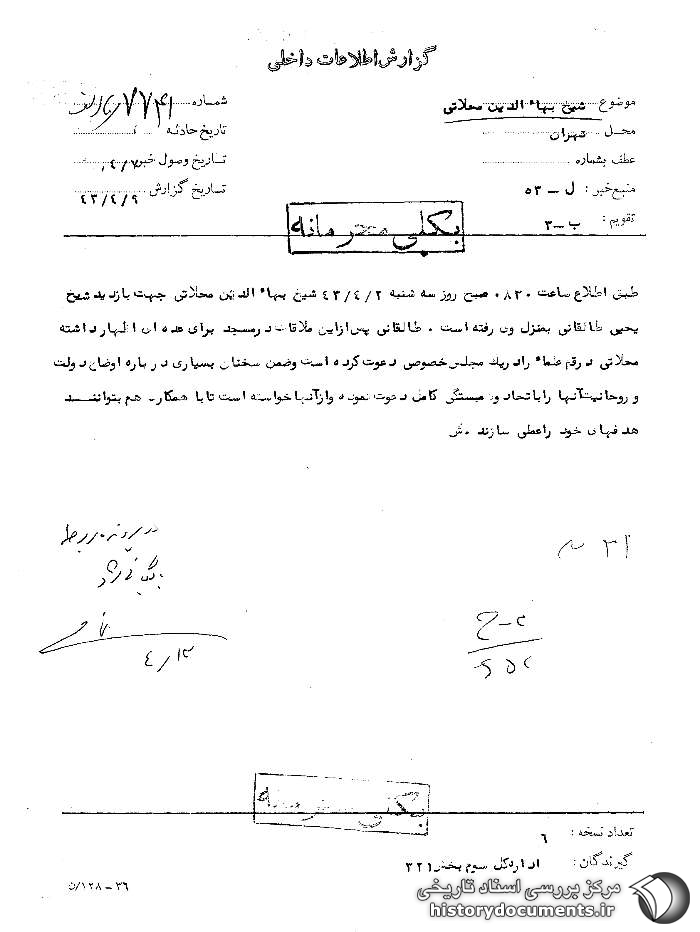 گزارش اطلاعات داخلی
موضوع شیخ بهاء الدین محلاتی
محل تهران
عطف بشماره
منبع خبر : ل - ۵۳
تقویم : ب - ۳
شماره ۷۷۴۱
تاریخ حادثه
تاریخ وصول خبر ۴/۷
تاریخ گزارش ۴۳/۴/۹
بکلی محرمانه
طبق اطلاع ساعت ۰۸۳۰ صبح روز سه شنبه ۴۳/۴/۲ شیخ بهاء الدین محلاتی جهت بازدید شیخ
یحیی طالقانی بمنزل وی رفته است ۰ طالقانی پس از این ملاقات در مسجد برای عده ای اظهار داشته
محلاتی در قم علماء را در یک مجلس خصوصی دعوت کرده است وضمن سخنان بسیاری در باره اوضاع دولت
و روحانیت آنها را با تحاد و همبستگی کامل دعوت نموده و از آنها خواسته است تا با همکاری هم بتوانند
هدفهای خود را عملی سازند ۰ ش
۳۱
در پرونده مربوطه
بایگانی شود
۴/۱۳
بکلی محرمانه
تعداد نسخه : ۶
گیرندگان : اداره کل سوم بخش ۳۲۱
۳۶ - ۱۲۸/ن
مرکز بررسی اسناد تاریخی
historydocuments.ir